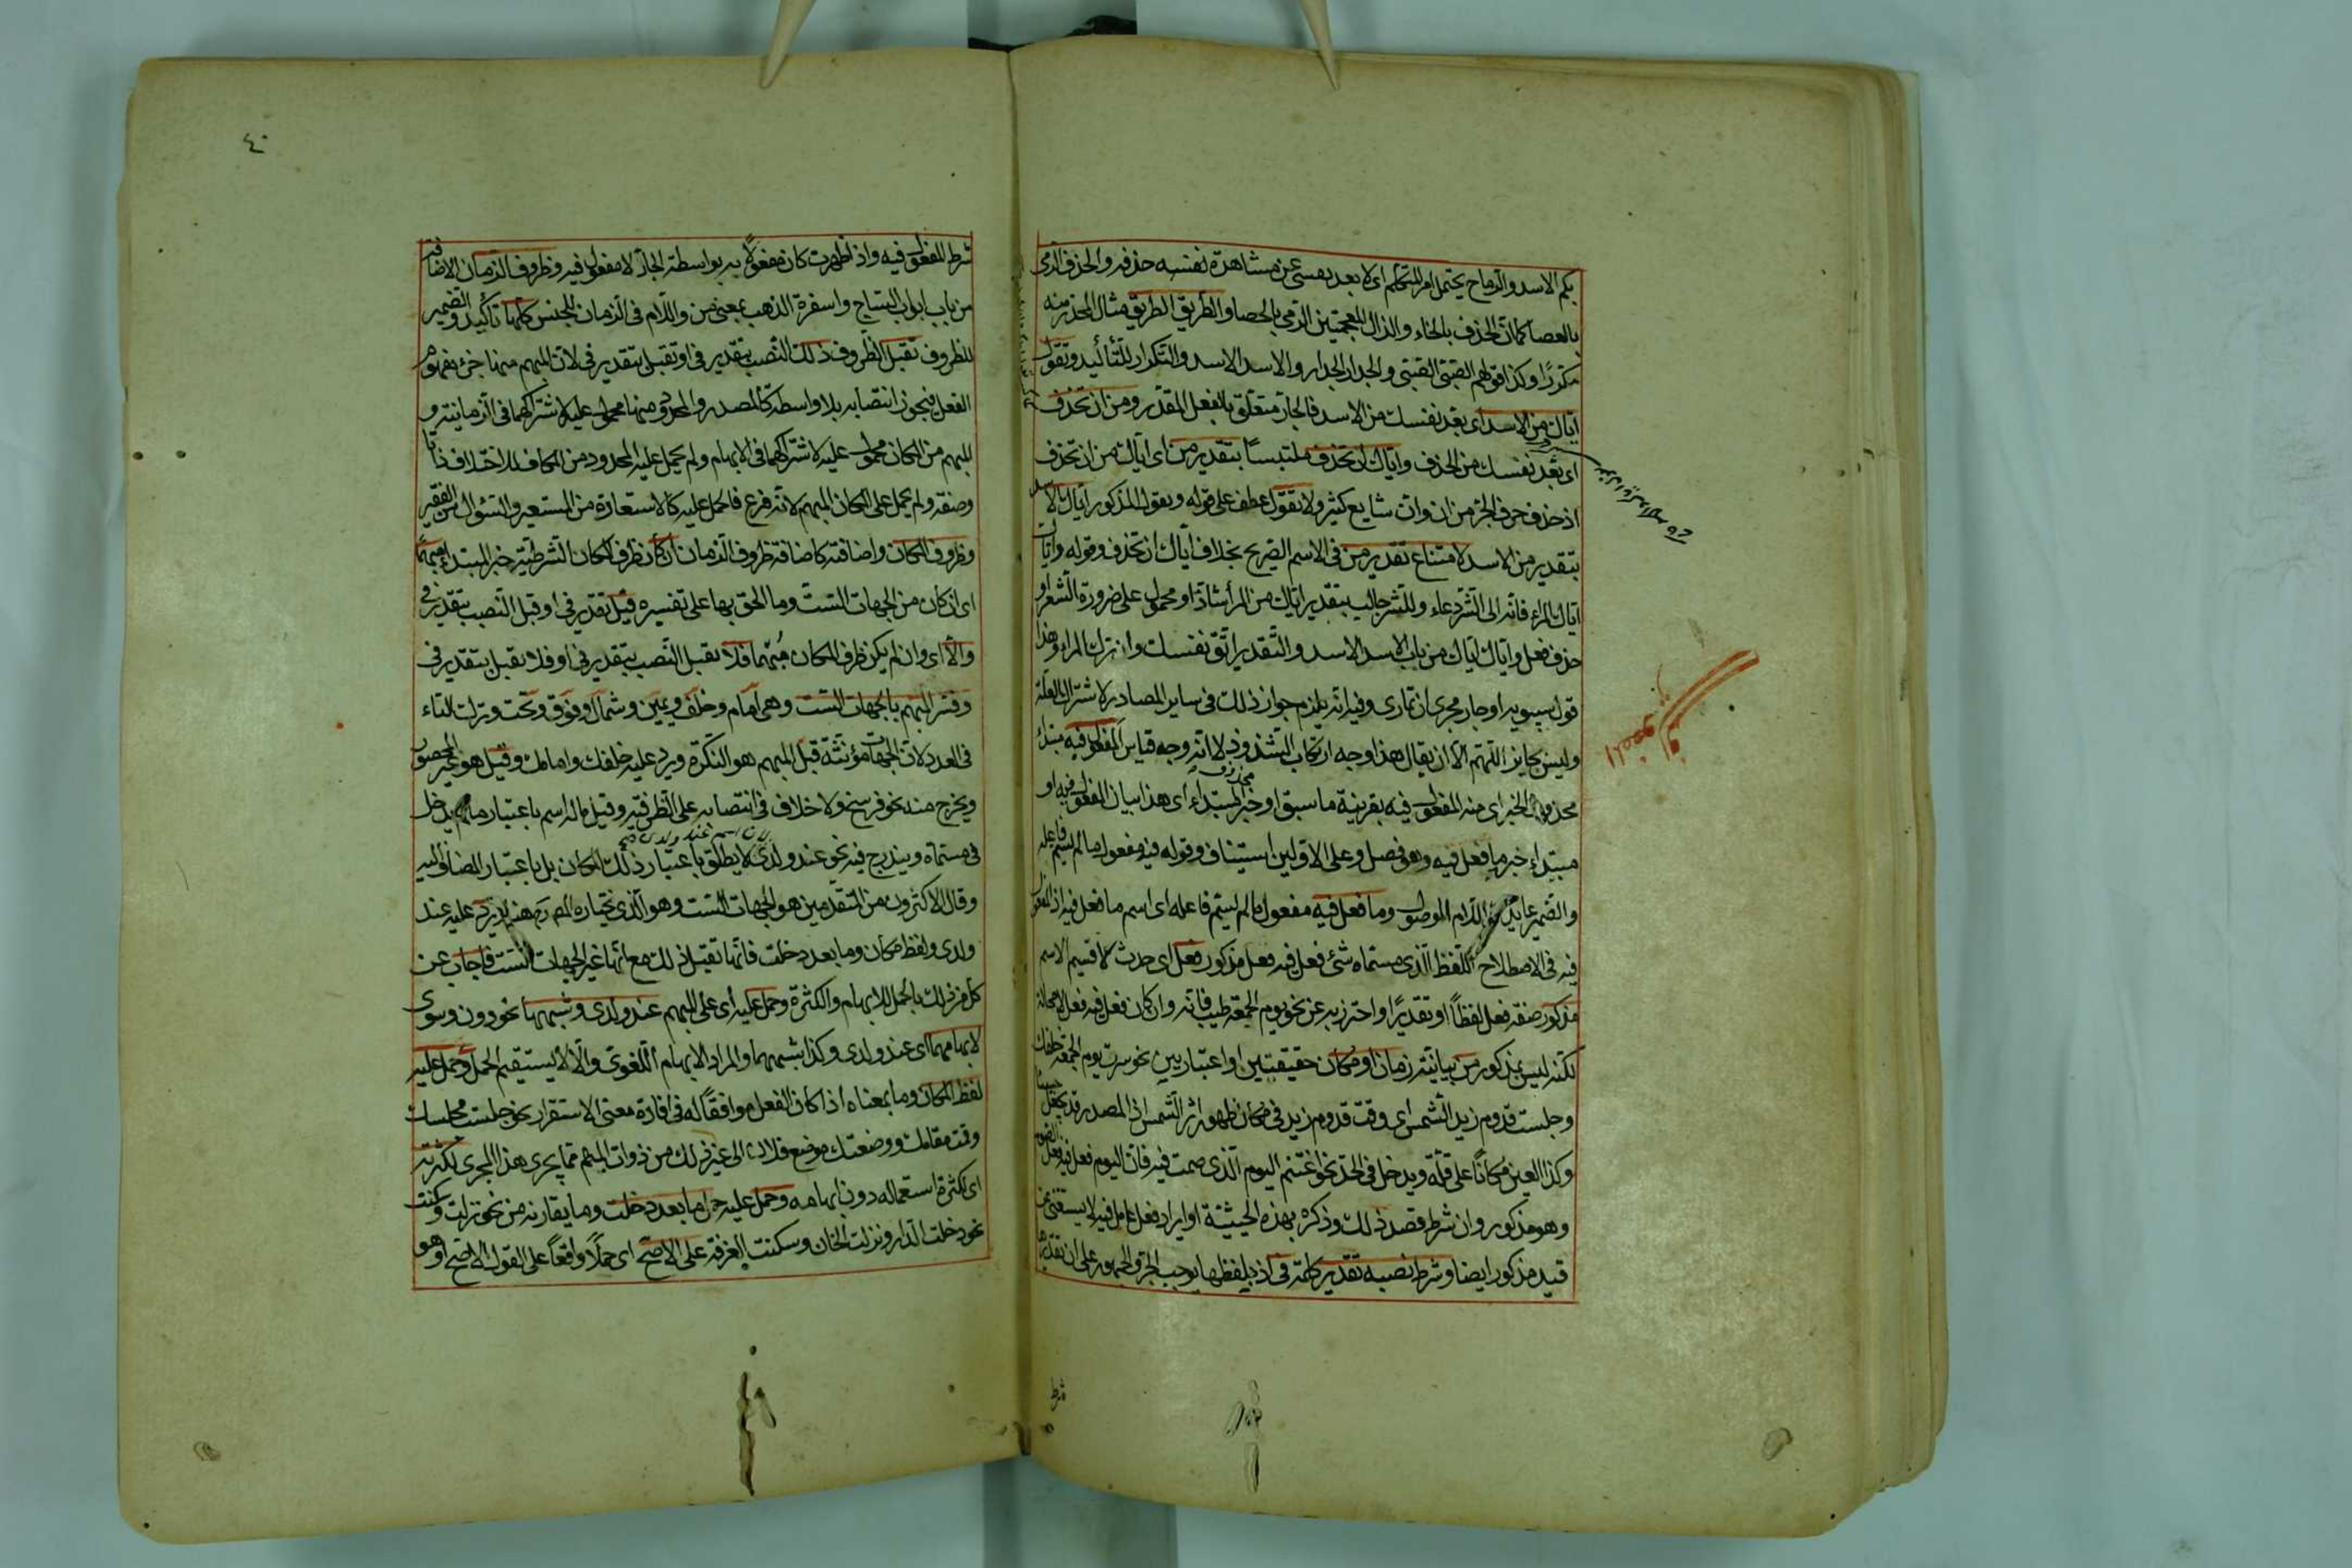 بكم الاسد والرماح يحتمل امر المتكلم اى لا بعد نفسى عن مشاهدة نفسه حذفه والحذف الرمى
بالعصا كما ان الحذف بالخاء والذال المعجمتين الرمى بالحصا والطريق الطريق مثال المحذر منه
مكررًا وكذا قولهم والجدار الجدار والاسد الاسد والتكرار للتأكيد وتقول
اياك من الاسد اى بعد نفسك من الاسد فالجار متعلق بالفعل المقدر ومن ان تحذف
اى بعد نفسك من الحذف واياك ان تحذف ملتبسًا بتقدير من اى اياك من ان تحذف
اذ حذف حرف الجر من ان وان شايع كثير ولا تقول عطف على قوله وبقول المذكور اياك الاسد
بتقدير من الاسد لامتناع تقدير من فى الاسم الصريح بخلاف اياك ان تحذف وقوله واياك
اياك المراء فانه الى الشر دعاء وللشر جالب بتقدير اياك من المرأ شاذ او محمول على ضرورة الشعر او
حذف فعل واياك اياك من باب الاسد الاسد والتقدير اتق نفسك واترك المراء وهذا
قول سيبويه او جار مجرى ان تمارى وفيه انه يلزم جواز ذلك فى ساير المصادر لاشتراك العلة
وليس بجايز اللهم الا ان يقال هذا وجه ارتكاب الشذوذ لا انه وجه قياس المفعول فيه مبتدأ
محذوف الخبر اى منه المفعول فيه بقرينة ما سبق او خبر المبتداء اى هذا بيان المفعول فيه او
محذوف
مبتداء خبره ما فعل فيه وهو فصل وعلى الاولين استيناف وقوله فيه مفعول ما لم يسم فاعله
والضمير عايد اللام الموصول وما فعل فيه مفعول ما لم يسم فاعله اى اسم ما فعل فيه اذ المفعول
فيه فى الاصطلاح اللفظ الذى مسماه شئ فعل فيه فعل مذكور فعل اى حدث لا قسيم الاسم
مذكور صفة فعل لفظاً او تقديرًا واحترز به عن نحو يوم الجمعة طيب فانه وان كان فعل فيه فعل لا محالة
لكنه ليس بمذكور من بيانية زمان او مكان حقيقيتين او اعتباريين نحو سرت يوم الجمعة خلفك
وجلست قدوم زيد الشمس اى وقت قدوم زيد فى مكان ظهور اثر الشمس اذ المصدر قد يجعل حينا
وكذا العين مكانًا على قلة ويدخل فى الحد نحو اغتنم اليوم الذى صمت فيه فان اليوم فعل فيه فعل الصوم
وهو مذكور وان شرط قصد ذلك وذكره بهذه الحيثية او ايراد فعل عامل فيه لا يستغنى عن
قيد مذكور ايضا وشرط نصبه تقدير كلمة فى اذ بلفظها يوجب الجر والجمهور على ان تقديرها
شرط
٤٠
شرط المفعول فيه واذ اظهرت كان مفعولاً به بواسطة الجار لا مفعول فيه وظروف الزمان الاضافة
من باب ابواب الساج واسفرة الذهب بمعنى من واللام فى الزمان للجنس كلها تأكيد والضمير
للظروف تقبل الظروف ذلك النصب بتقدير فى او تقبل بتقدير فى لان المبهم منها جزء مفهوم
الفعل فيجوز انتصابه بلا واسطة كالمصدر والمحدود منها محمول عليه لاشتراكهما فى الزمانية و
المبهم من المكان محمول عليه لاشتراكهما فى الابهام ولم يحمل عليه المحدود من المكان لاختلاف ذاتا
وصفة ولم يحمل على المكان المبهم لانه فرع فالحمل عليه كالاستعارة من المستعير والسئوال من الفقير
وظروف المكان واضافته كاضافة ظروف الزمان ان كان ظرف المكان الشرطية خبر المبتدا مبهمًا
اى ان كان من الجهات الست وما الحق بها على تفسيره قبل تقدير فى او قبل النصب بتقدير فى
والا اى وان لم يكن ظرف المكان مبهما فلا تقبل النصب بتقدير فى او فلا يقبل بتقدير فى
وفسر المبهم بالجهات الست وهى امام وخلف ويمين وشمال وفوق وتحت وترك التاء
فى العدد لان الجهات مؤنثة قبل المبهم هو النكرة ويرد عليه خلفك وامامك وقيل هو غير المحصور
ويخرج منه نحو فرسخ ولا خلاف فى انتصابه على الظرفية وقيل ماله اسم باعتبار ما لم يدخل
فى مسماه ويندرج فيه نحو عند ولدى لا يطلق باعتبار ذلك المكان بل باعتبار المضاف اليه
وقال الاكثرون من المتقدمين هو الجهات الست وهو الذى يختاره المص يرد عليه عند
ولدى ولفظ مكان وما بعد دخلت فانها تقبل ذلك مع انها غير الجهات الست فاجاب عن
كل من ذلك بالحمل للابهام والكثرة وحمل عليه اى على المبهم عند ولدى وشبههما نحو دون وسوى
لابهامهما اى عند ولدى وكذا شبههما والمراد الابهام اللغوى والا لا يستقيم الحمل وحمل عليه
لفظ المكان وما بمعناه اذا كان الفعل موافقًا له فى افادة معنى الاستقرار نحو جلست مجلسك
وقمت مقامك ووضعتك موضع فلان الى غير ذلك من ذوات المبهم مما يجرى هذا المجرى لكثرته
اى لكثرة استعماله دون ابهامه وحمل عليه حمل ما بعد دخلت وما يقاربه من نحو نزلت وسكنت
نحو دخلت الدار ونزلت الخان وسكنت الغرفة على الاصح اى حملاً واقعًا على القول الاصح او هو